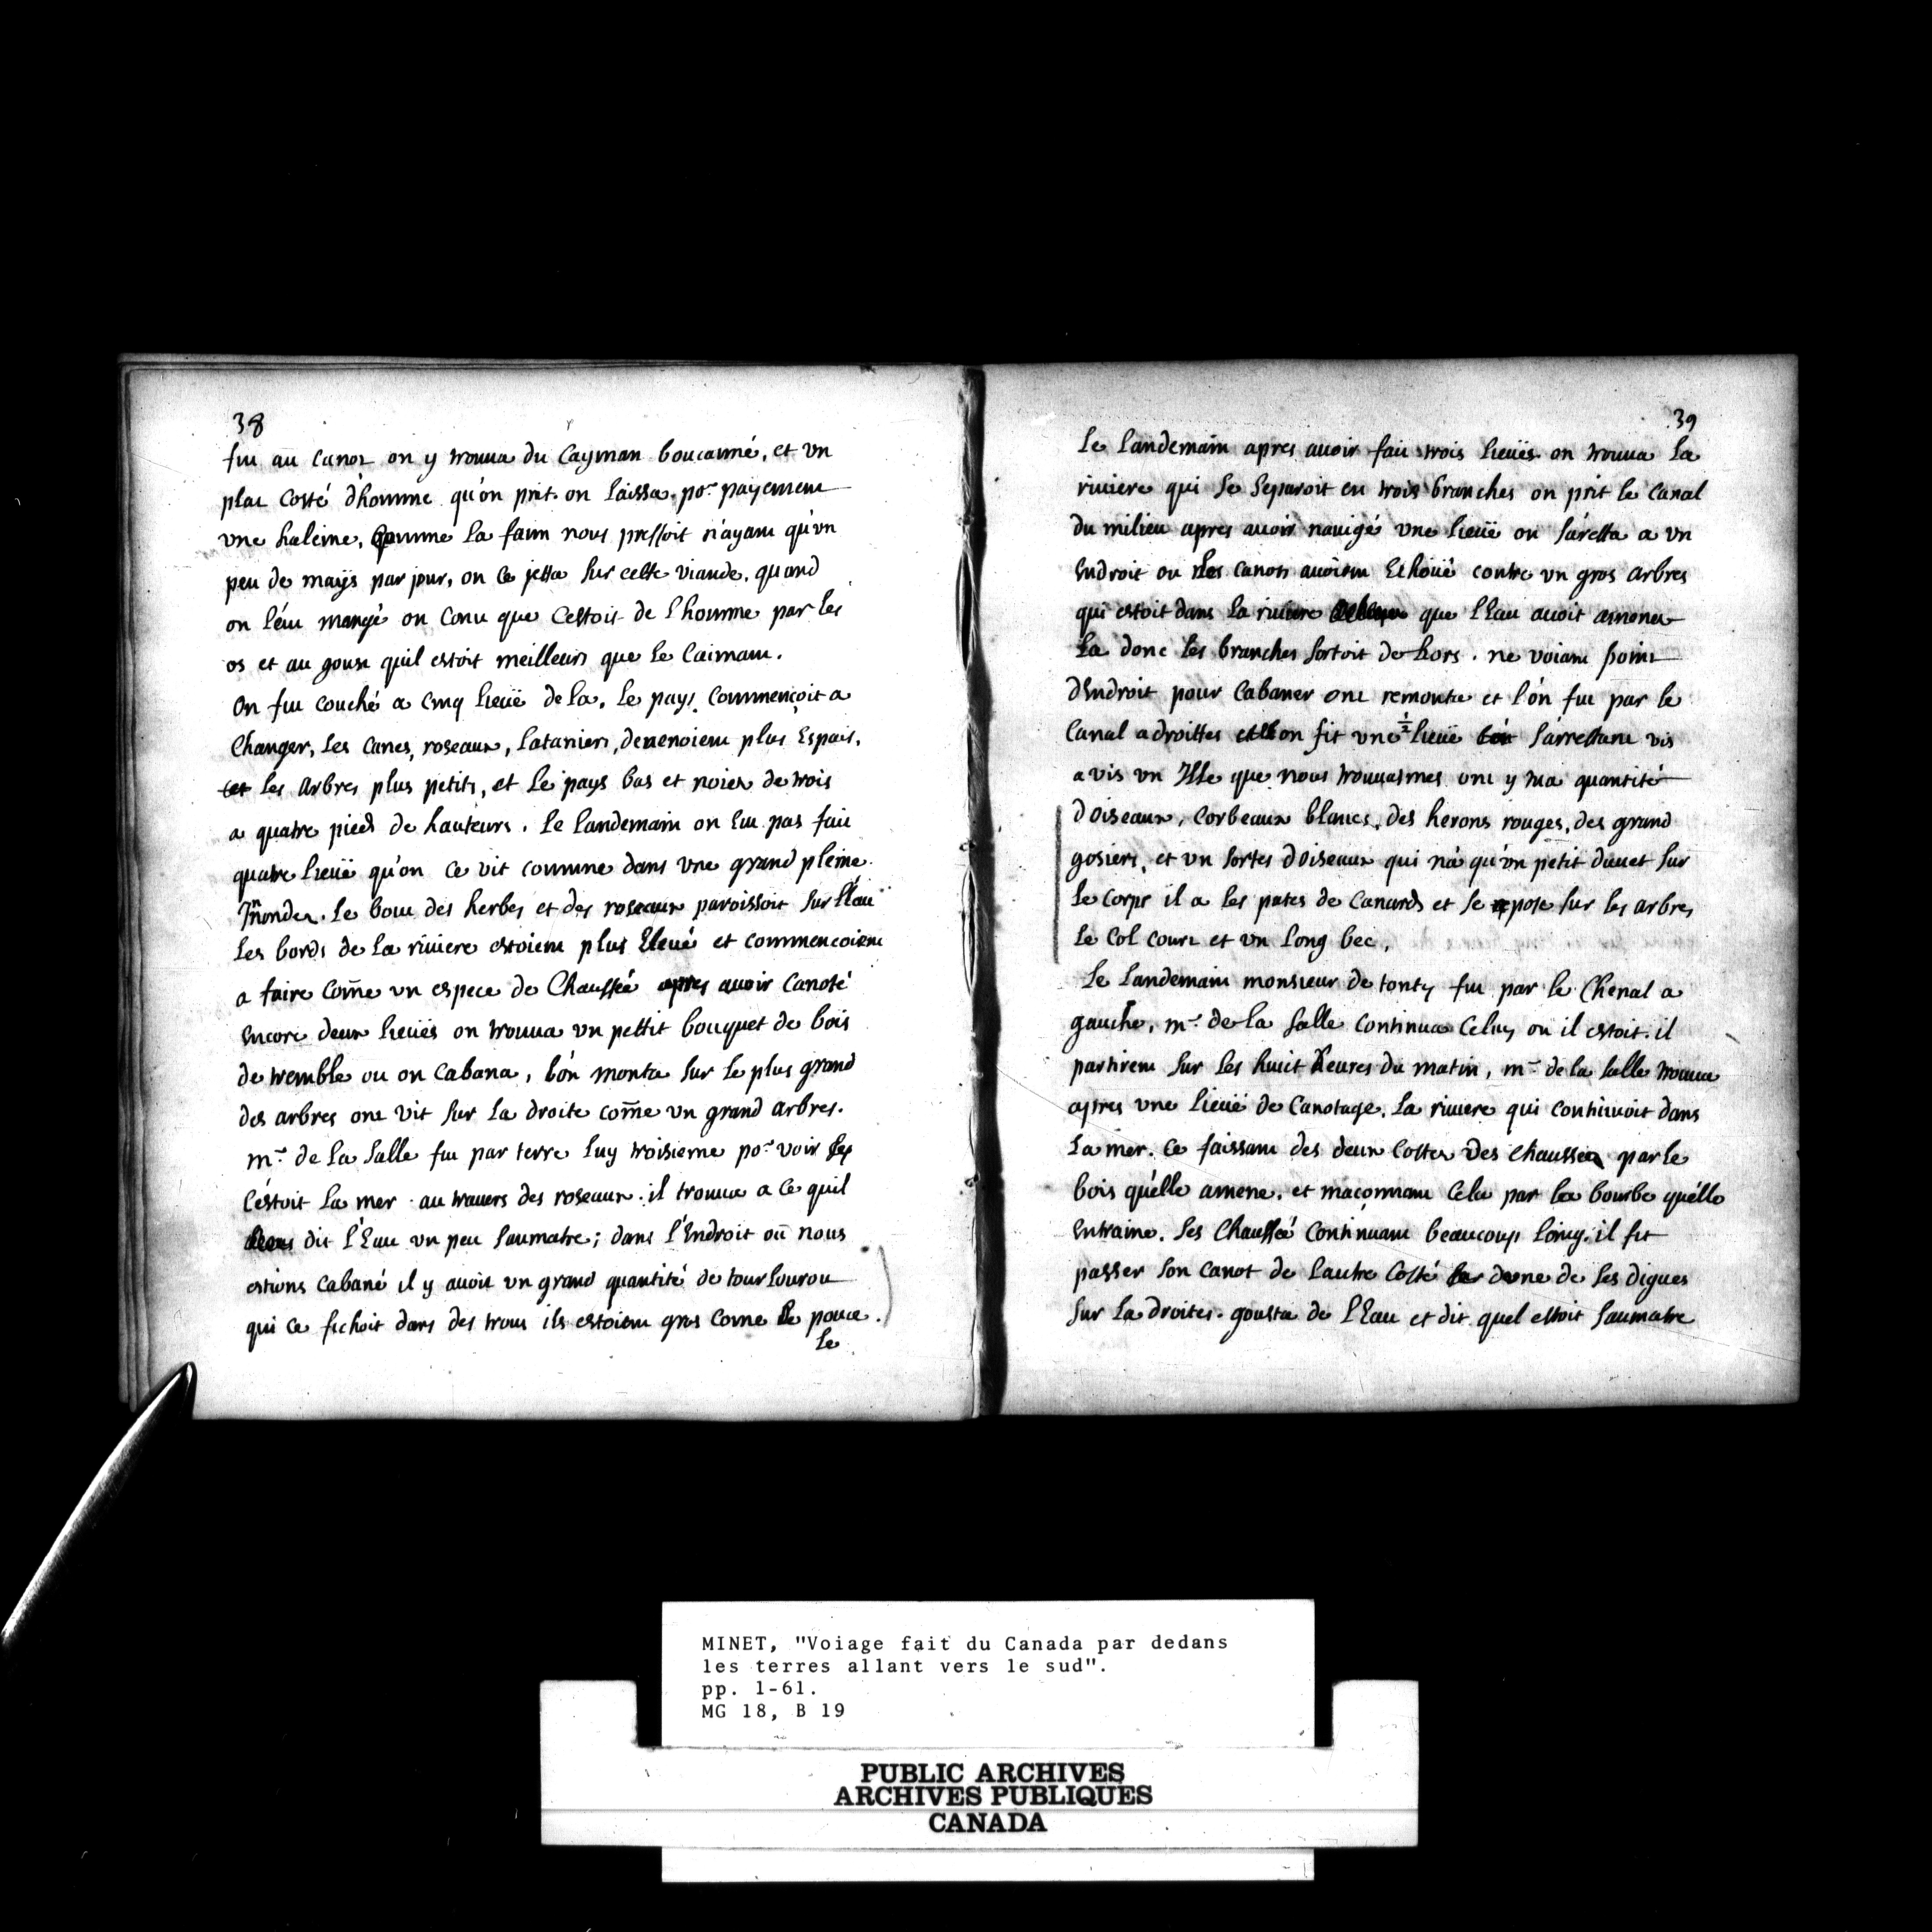 38
fut au canot on y trouua du Cayman boucanné, et vn
plat costé d'homme qu'on prit. on laissa por payement
vne haleine, Comme la faim nous pressoit n'ayant qu'vn
peu de maÿs par jour, on ce jetta sur cette viande. quand
on l'éut mangé on conut que cestoit de l'homme par les
os et au goust quil estoit meilleurs que le Caimant.
On fut couché a cinq lieüe de la. le pays commençoit a
Changer, les canes, roseaux, lataniers, deuenoient plus Espais,
et les arbres plus petits, et le pays bas et noiez de trois
a quatre pieds de hauteurs. le landemain on Eut pas fait
quatre lieüe qu'on ce vit comme dans vne grand pleine
Jnondez. le bout des herbes et des roseaux paroissoit sur l'éau
les bords de la riuiere estoient plus Eleué et commencoient
a faire com̃e vn espece de Chaussée apres auoir canoté
encore deux lieües on trouua vn pettit bouquet de bois
de tremble ou on cabana, l'on monta sur le plus grand
des arbres ont vit sur la droite com̃e vn grand arbres.
mr de la Salle fut par terre luy troisieme por voir sy
c'éstoit la mer au trauers des roseaux. il trouua a ce quil
dit l'Eau vn peu saumatre; dans l'Endroit ou nous
estions cabané il y auoit vn grand quantité de tourlourou
qui ce fichoit dans des trous ils estoient gros come le pouce.
le
39
le landemain apres auoir fait trois lieües on trouua la
riuiere qui se separoit en trois branches on prit le canal
du milieu apres auoir nauigé vne lieüe on s'áretta a vn
Endroit ou les canots auoient Echoüé contre vn gros arbres
qui estoit dans la riuiere que l'Eau auoit amener
la donc les branches sortoit dehors. ne voiant point
d'Endroit pour cabaner ont remonta et l'ón fut par le
canal a droittes et on fit vne ½ lieüe s'árrettant vis
a vis vn Isle que nous trouuasmes ont y tua quantité
d'oiseaux, corbeaux blancs, des herons rouges, des grand
gosiers, et vn sortes d'oiseaux qui n'a qu'vn petit duuet sur
le corps il a les pates de canards et se pose sur les arbres
le col court et vn long bec,
Le landemain monsieur de tonty fut par le Chenal a
gauche, mr de la Salle continua celuy ou il estoit. il
partirent sur les huit heures du matin, mr de la salle trouua
apres vne lieüe de canotage. la riuiere qui continuoit dans
la mer. ce faissant des deux costez des chaussées par le
bois qu'élle amene. et maçonnant cela par la bourbe qu'élle
entraine. les Chaussée continuant beaucoup loing. il fit
passer son canot de l'autre costé dune de ses digues
sur la droites. gousta de l'Eau et dit quel estoit saumatre
MINET, "Voiage fait du Canada par dedans
les terres allant vers le sud".
pp. 1-61.
MG 18, B 19
PUBLIC ARCHIVES
ARCHIVES PUBLIQUES
CANADA